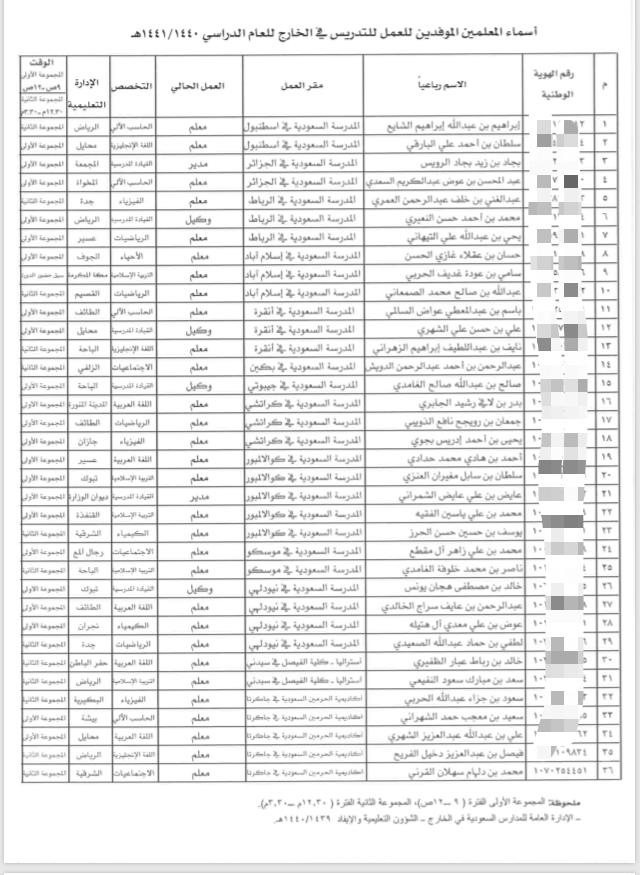 أسماء المعلمين الموفدين للعمل للتدريس في الخارج للعام الدراسي ١٤٤١/١٤٤٠هـ
م رقم الهوية الوطنية الاسم رباعياً مقر العمل العمل الحالي التخصص الإدارة التعليمية الوقت المجموعة الأولى ٩ص-١٢ص المجموعة الثانية ١٢.٣٠م-٣.٣٠م
١ إبراهيم بن عبدالله إبراهيم الشايع المدرسة السعودية في اسطنبول معلم الحاسب الآلي الرياض المجموعة الثانية
٢ سلطان بن أحمد علي البارقي المدرسة السعودية في اسطنبول معلم اللغة الإنجليزية محايل المجموعة الأولى
٣ بجاد بن زيد بجاد الرويس المدرسة السعودية في الجزائر مدير القيادة المدرسية المجمعة المجموعة الأولى
٤ عبد المحسن بن عوض عبدالكريم السعدي المدرسة السعودية في الجزائر معلم الحاسب الآلي المخواة المجموعة الأولى
٥ عبدالغني بن خلف عبدالرحمن العمري المدرسة السعودية في الرباط معلم الفيزياء جدة المجموعة الثانية
٦ محمد بن أحمد حسن النعيري المدرسة السعودية في الرباط وكيل القيادة المدرسية الرياض المجموعة الأولى
٧ يحي بن عبدالله علي التيهاني المدرسة السعودية في الرباط معلم الرياضيات عسير المجموعة الأولى
٨ حسان بن عقلاء غازي الحسن المدرسة السعودية في إسلام آباد معلم الأحياء الجوف المجموعة الأولى
٩ سامي بن عودة غديف الحربي المدرسة السعودية في إسلام آباد معلم التربية الإسلامية مكة المكرمة سبق حضور الدورة
١٠ عبدالله بن صالح محمد الصمعاني المدرسة السعودية في إسلام آباد معلم الرياضيات القصيم المجموعة الثانية
١١ باسم بن عبدالمعطي عواض السالمي المدرسة السعودية في أنقرة معلم الرياضيات الطائف المجموعة الأولى
١٢ علي بن حسن علي الشهري المدرسة السعودية في أنقرة وكيل القيادة المدرسية محايل المجموعة الأولى
١٣ نايف بن عبداللطيف إبراهيم الزهراني المدرسة السعودية في أنقرة معلم اللغة الإنجليزية الباحة المجموعة الثانية
١٤ عبدالرحمن بن أحمد عبدالرحمن الدويش المدرسة السعودية في بكين معلم الاجتماعيات الزلفي المجموعة الثانية
١٥ صالح بن عبدالله صالح الغامدي المدرسة السعودية في جيبوتي وكيل القيادة المدرسية الباحة المجموعة الأولى
١٦ بدر بن لافي رشيد الجابري المدرسة السعودية في كراتشي معلم اللغة العربية المدينة المنورة المجموعة الأولى
١٧ جمعان بن رويجح نافع الذويبي المدرسة السعودية في كراتشي معلم الرياضيات الطائف المجموعة الأولى
١٨ يحيى بن أحمد إدريس بجوي المدرسة السعودية في كراتشي معلم الفيزياء جازان المجموعة الأولى
١٩ أحمد بن هادي محمد حدادي المدرسة السعودية في كوالالمبور معلم اللغة العربية عسير المجموعة الأولى
٢٠ سلطان بن سابل مغيران العنزي المدرسة السعودية في كوالالمبور معلم التربية الإسلامية تبوك المجموعة الأولى
٢١ عايض بن علي عايض الشمراني المدرسة السعودية في كوالالمبور مدير القيادة المدرسية ديوان الوزارة المجموعة الأولى
٢٢ محمد بن علي ياسين الفقيه المدرسة السعودية في كوالالمبور معلم التربية الإسلامية القنفذة المجموعة الأولى
٢٣ يوسف بن حسين حسن الحرز المدرسة السعودية في كوالالمبور معلم الكيمياء الشرقية المجموعة الثانية
٢٤ محمد بن علي زاهر آل مقطع المدرسة السعودية في موسكو معلم الاجتماعيات رجال ألمع المجموعة الأولى
٢٥ ناصر بن محمد خلوفة الغامدي المدرسة السعودية في موسكو معلم التربية الإسلامية الباحة المجموعة الثانية
٢٦ خالد بن مصطفى هجان يونس المدرسة السعودية في نيودلهي وكيل القيادة المدرسية تبوك المجموعة الأولى
٢٧ عبدالرحمن بن عايف سراج الخالدي المدرسة السعودية في نيودلهي معلم اللغة العربية الطائف المجموعة الأولى
٢٨ عوض بن علي معدي آل هتيله المدرسة السعودية في نيودلهي معلم الكيمياء نجران المجموعة الأولى
٢٩ لطفي بن حماد عبدالله الصعيدي المدرسة السعودية في نيودلهي معلم الرياضيات جدة المجموعة الثانية
٣٠ خالد بن رباط عبار الظفيري أستراليا ـ كلية الفيصل في سيدني معلم اللغة العربية حفر الباطن المجموعة الثانية
٣١ سعد بن مبارك سعود النفيعي أستراليا ـ كلية الفيصل في سيدني معلم التربية الإسلامية الرياض المجموعة الثانية
٣٢ سعود بن جزاء عبدالله الحربي أكاديمية الحرمين السعودية في جاكرتا معلم الفيزياء البكيرية المجموعة الثانية
٣٣ سعيد بن معجب حمد الشهراني أكاديمية الحرمين السعودية في جاكرتا معلم الحاسب الآلي بيشة المجموعة الأولى
٣٤ علي بن عبدالله عبدالعزيز الشهري أكاديمية الحرمين السعودية في جاكرتا معلم اللغة العربية محايل المجموعة الأولى
٣٥ فيصل بن عبدالعزيز دخيل الفريح أكاديمية الحرمين السعودية في جاكرتا معلم اللغة الإنجليزية الرياض المجموعة الثانية
٣٦ ١٠٧٠٢٥٤٤٥١ محمد بن دليام سهلان القرني أكاديمية الحرمين السعودية في جاكرتا معلم الاجتماعيات الشرقية المجموعة الثانية
ملحوظة: المجموعة الأولى الفترة ( ٩ ـ ١٢ص)، المجموعة الثانية الفترة ( ١٢،٣٠م ـ ٣،٣٠م).
ـ الإدارة العامة للمدارس السعودية في الخارج ـ الشؤون التعليمية والإيفاد ١٤٤٠/١٤٣٩هـ.